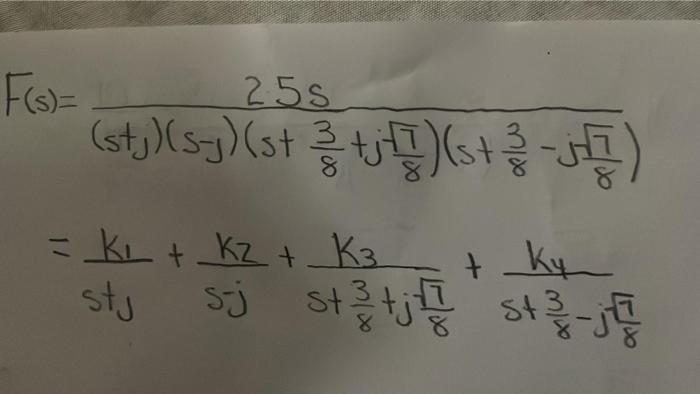 F(s)= 2.5s / (s+j)(s-j)(s+ 3/8 +j√7/8)(s+ 3/8 -j√7/8)
= K1/s+j + K2/s-j + K3/s+ 3/8 +j√7/8 + K4/s+ 3/8 -j√7/8